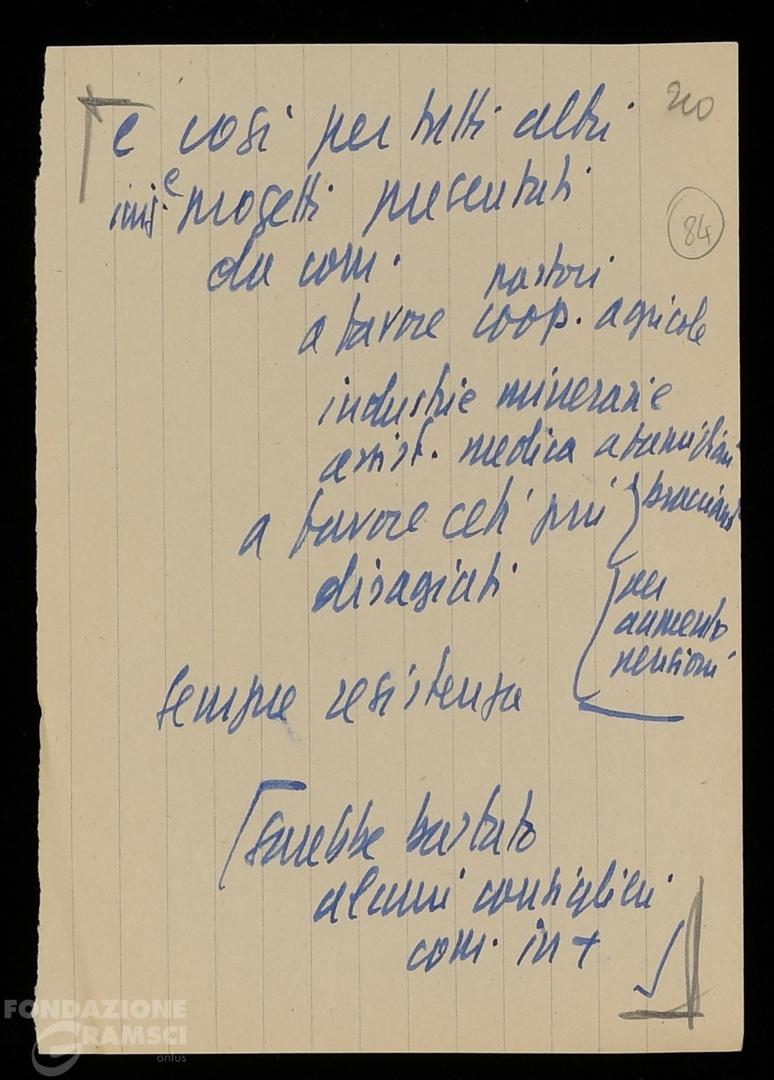 20
84
e così per tutti altri
e progetti presentati
da com.
pastori
a favore coop. agricole
industrie minerarie
assist. medica a famigliari
braccianti
a favore ceti più
disagiati
per
aumento
pensioni
sempre resistenza
Sarebbe bastato
alcuni consiglieri
com. in +
FONDAZIONE
GRAMSCI
onlus